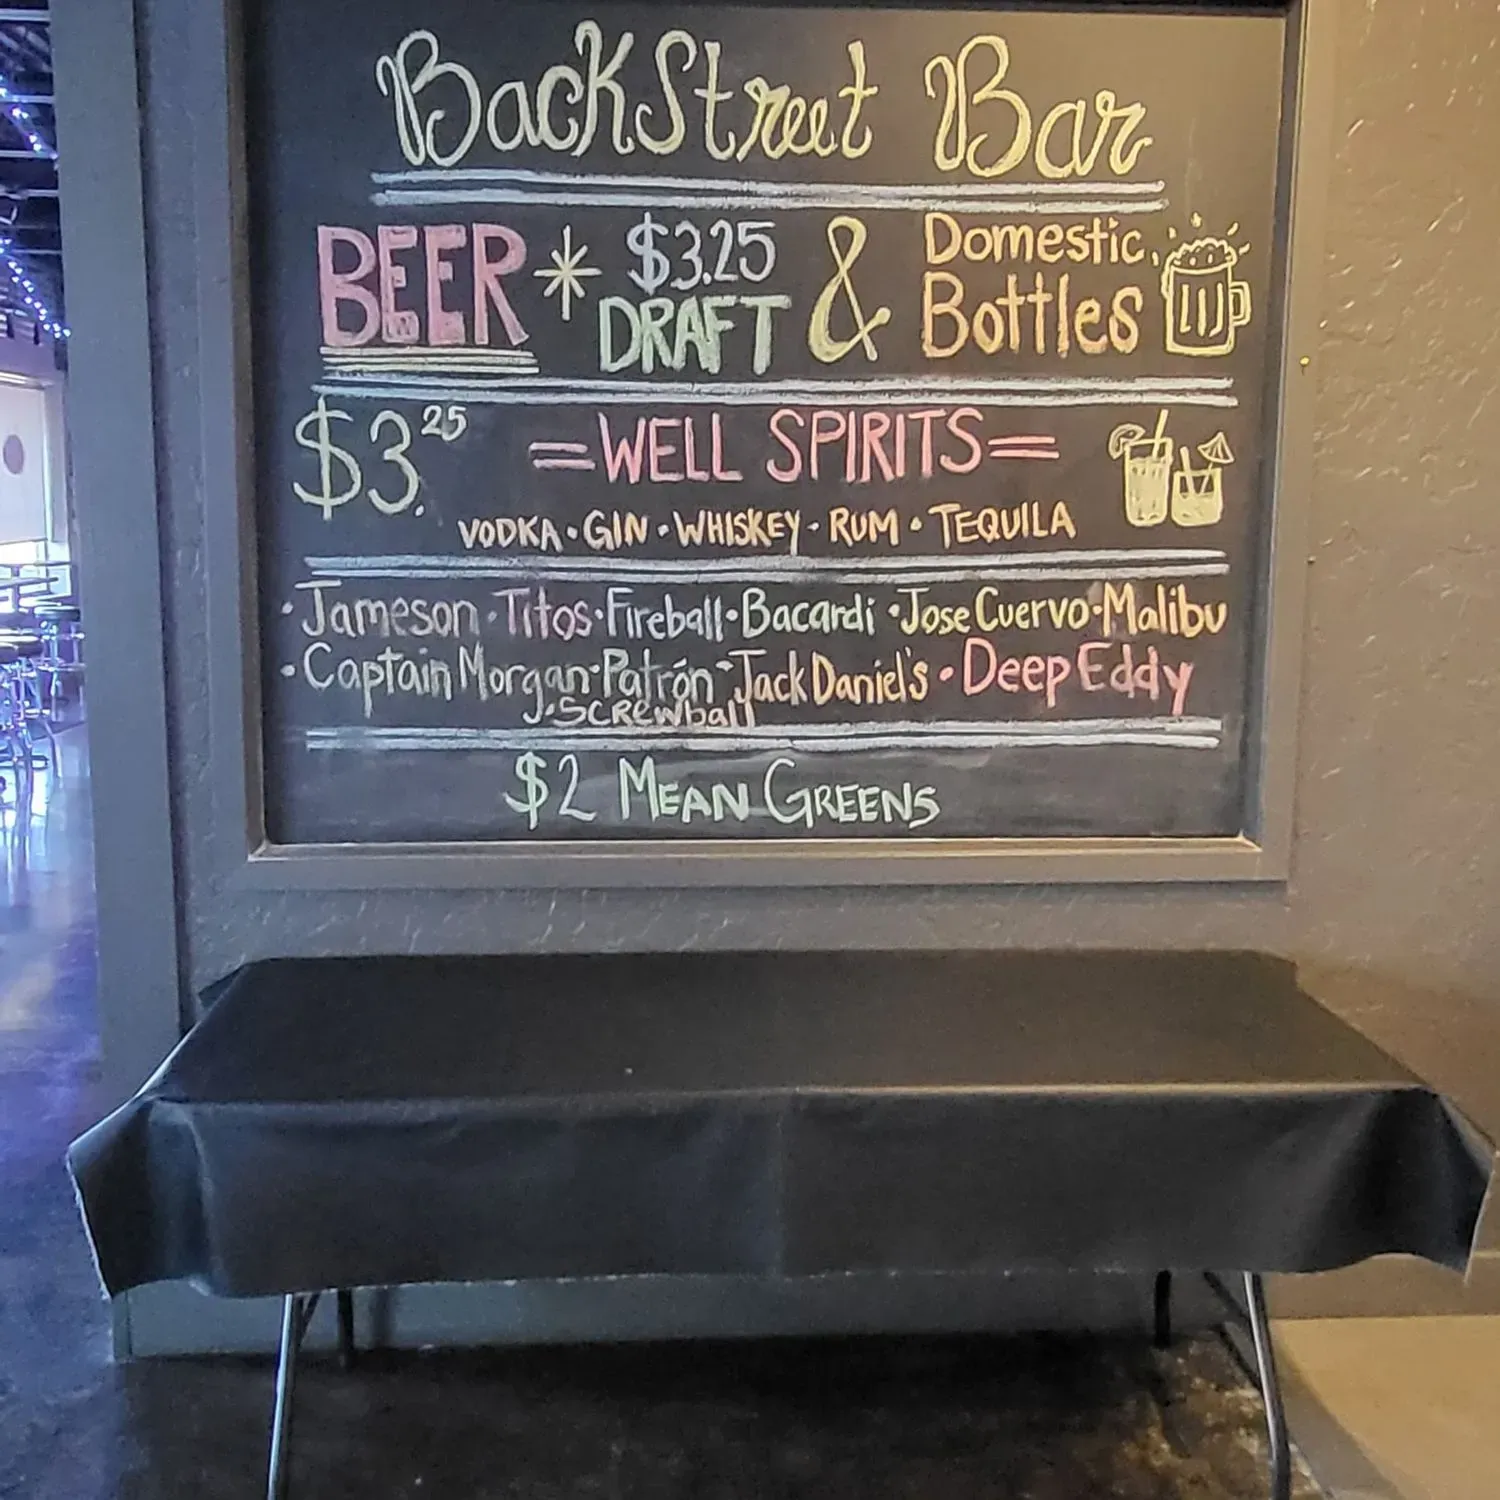 BackStreet Bar
BEER * $3.25 DRAFT & Domestic Bottles
$3.25 =WELL SPIRITS=
VODKA • GIN • WHISKEY • RUM • TEQUILA
• Jameson • Titos • Fireball • Bacardi • Jose Cuervo • Malibu
• Captain Morgan • Patrón • Jack Daniel's • Deep Eddy
• SCREwball
$2 MEAN GREENS